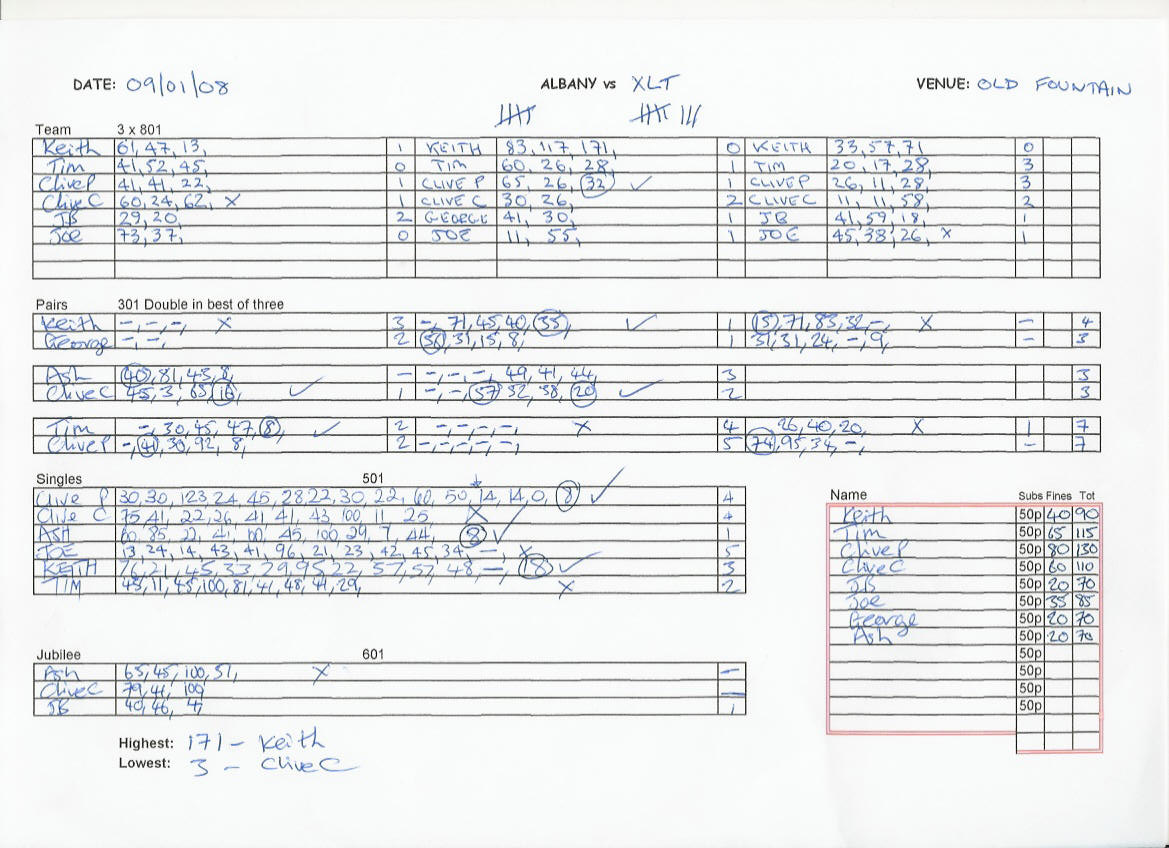 DATE: 09/01/08 ALBANY vs XLT VENUE: OLD FOUNTAIN
Team 3 x 801
Keith 61, 47, 13, 1 KEITH 83, 117, 171, 0 KEITH 33, 57, 71 0
Tim 41, 52, 45, 0 TIM 60, 26, 28, 1 TIM 20, 17, 28, 3
CliveP 41, 41, 22, 1 CLIVE P 65, 26, 32 ✓ 1 CLIVEP 26, 11, 28, 3
Clive C 60, 24, 62, X 1 CLIVE C 30, 26, 2 CLIVE C 11, 11, 58, 2
JB 29, 20, 2 GEORGE 41, 30, 1 JB 41, 59, 18, 1
Joe 73, 37, 0 JOE 11, 55, 1 JOE 45, 38, 26, X 1
Pairs 301 Double in best of three
Keith -, -, -, X 3 -, 71, 45, 40, 35, ✓ 1 15, 71, 83, 32, -, X - 4
George -, -, 2 31, 15, 8, 1 31, 31, 24, -, 9, - 3
Ash 40, 81, 43, 8, - -, -, -, -, 49, 41, 44, 3 3
Clive C 45, 3, 65, 16, ✓ 1 -, -, 57, 52, 38, 20 ✓ 2 3
Tim -, 30, 45, 47, 8, ✓ 2 -, -, -, -, X 4 26, 40, 20, X 1 7
CliveP -, 41, 30, 92, 8, 2 -, -, -, -, -, 5 74, 95, 34, -, - 7
Singles 501
Clive P 30, 30, 123, 24, 45, 28 22, 30, 22, 60, 50, 14, 14, 0, 8 ✓ 4
Clive C 75, 41, 22, 26, 41, 41, 43, 100, 11 25, X 4
ASH 60, 85, 22, 41, 60, 45, 100, 29, 7, 44, 8 ✓ 1
JOE 13, 24, 14, 43, 41, 96, 21, 23, 42, 45, 34, -, X 5
KEITH 76, 21, 45, 33, 29, 95, 22, 57, 57, 48, -, 18 ✓ 3
TIM 43, 11, 45, 100, 81, 41, 48, 41, 29, X 2
Name Subs Fines Tot
Keith 50p 40 90
Tim 50p 65 115
CliveP 50p 80 130
Clive C 50p 60 110
JB 50p 20 70
Joe 50p 35 85
George 50p 20 70
Ash 50p 20 70
50p
50p
50p
50p
Jubilee 601
Ash 65, 45, 100, 51, X -
Clive C 79, 41, 100 -
JB 40, 46, 4, 1
Highest: 171 - Keith
Lowest: 3 - Clive C